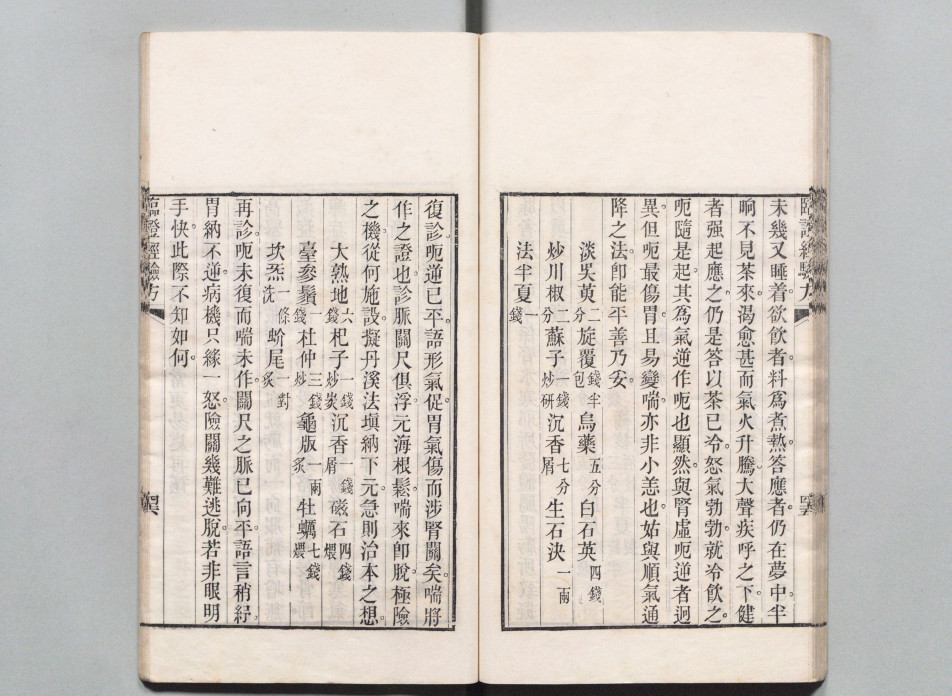 臨證經驗方
未幾又睡。着欲飲者。料爲煮熟。答應者。仍在夢中。半
晌不見茶來。渴愈甚而氣火升騰。大聲疾呼之下。健
者强起應之。仍是答以茶已冷。怒氣勃勃。就冷飲之。
呃隨是起。其爲氣逆作呃也顯然。與腎虛呃逆者迥
異。但呃最傷胃。且易變喘。亦非小恙也。姑與順氣通
降之法。卽能平善乃安。
淡吳萸二分 旋覆錢半包 烏藥五分 白石英四錢
炒川椒二分 蘇子一錢炒研 沉香七分屑 生石決一兩
法半夏一錢
復診。呃逆已平。語形氣促。胃氣傷而涉腎關矣。喘將
作之證也。診脈關尺俱浮。元海根鬆。喘來卽脫。極險
之機。從何施設。擬丹溪法填納下元。急則治本之想。
大熟地六錢 杞子一錢炒炭 沉香一錢屑 磁石四錢煨
臺參鬚一錢 杜仲三錢炒 龜版一兩炙 牡蠣七錢煨
坎炁一條洗 蚧尾一對炙
再診。呃未復而喘未作。關尺之脈已向平。語言稍紓。
胃納不逆。病機只緣一怒。險關幾難逃脫。若非眼明
手快。此際不知如何。
臨證經驗方